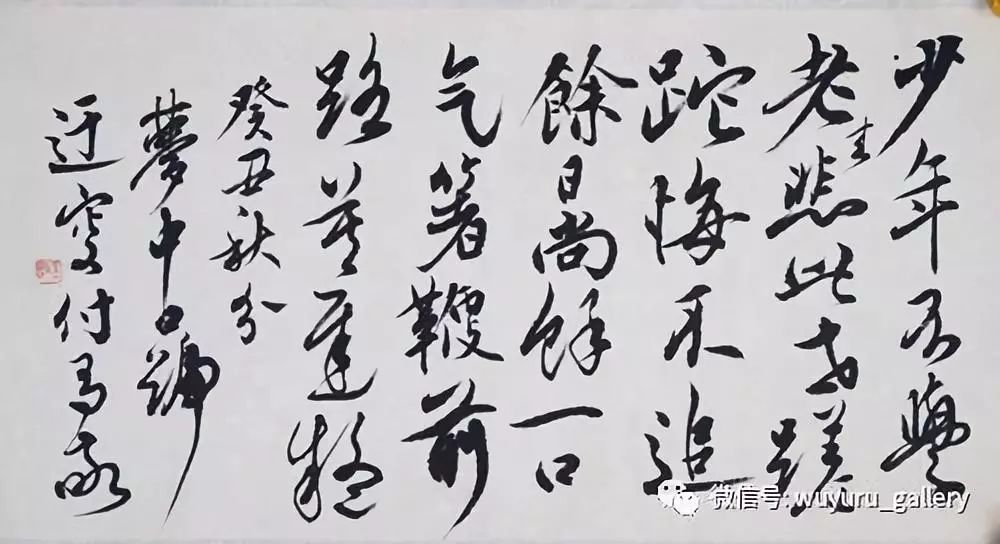 少年不覺
老去悲此世蹉
跎悔不追
餘日尚餘一口
气箸鞭前
路莫遲疑
癸丑秋分
夢中口號
迂叟付馬
微信号:wuyuru_gallery